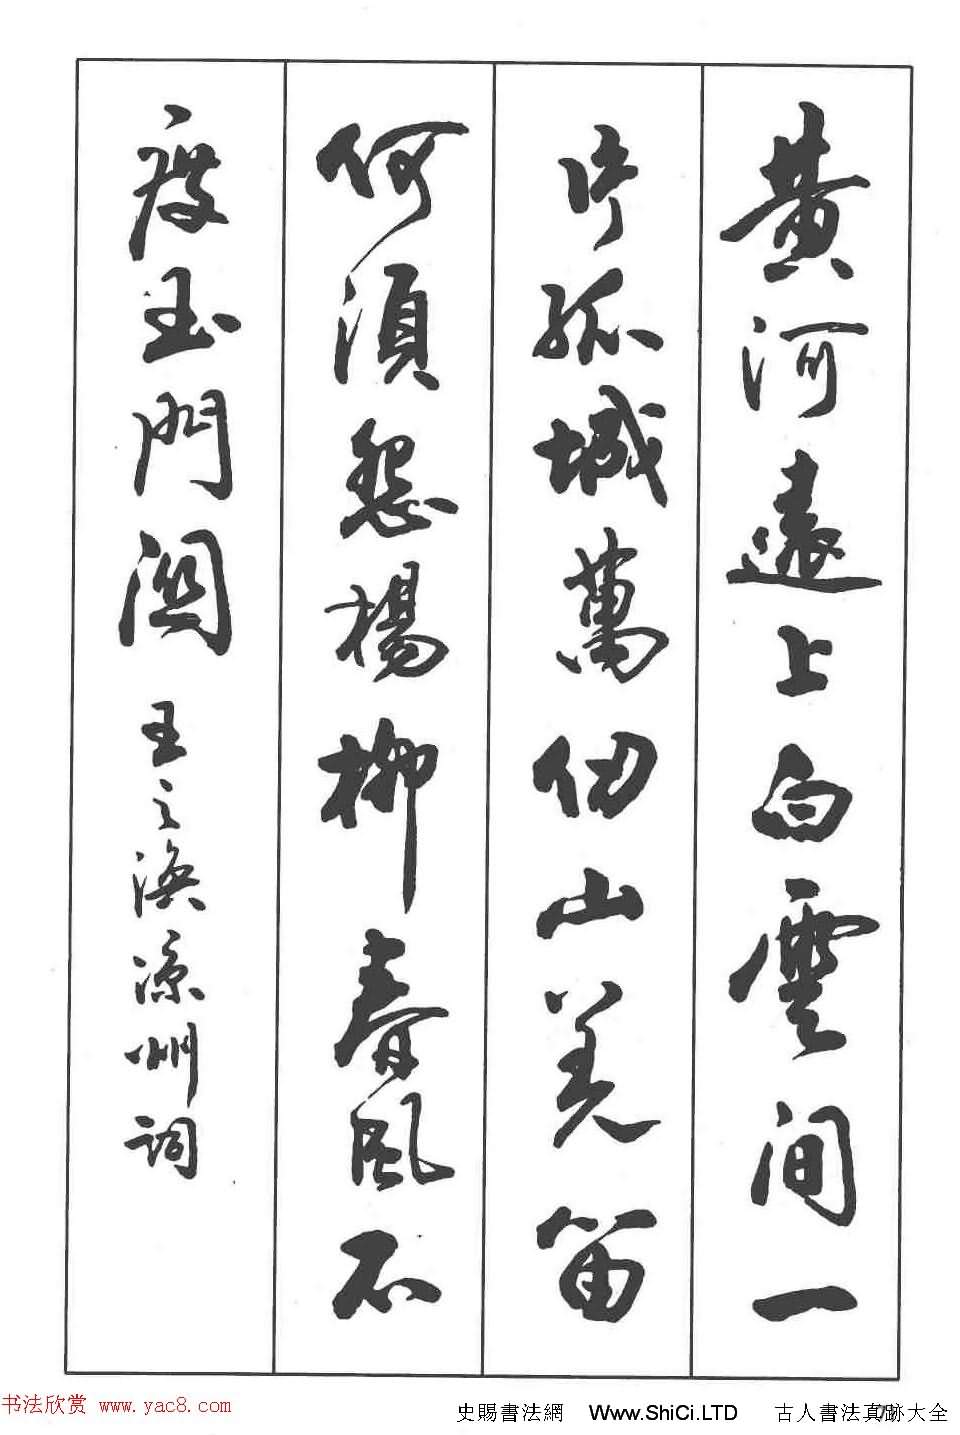 黄河遠上白雲间一
片孤城萬仞山羌笛
何須怨楊柳春風不
度玉門関
王之渙凉州詞
书法欣赏 www.yac8.com
史賜書法網 Www.ShiCi.LTD 古人書法真跡大全